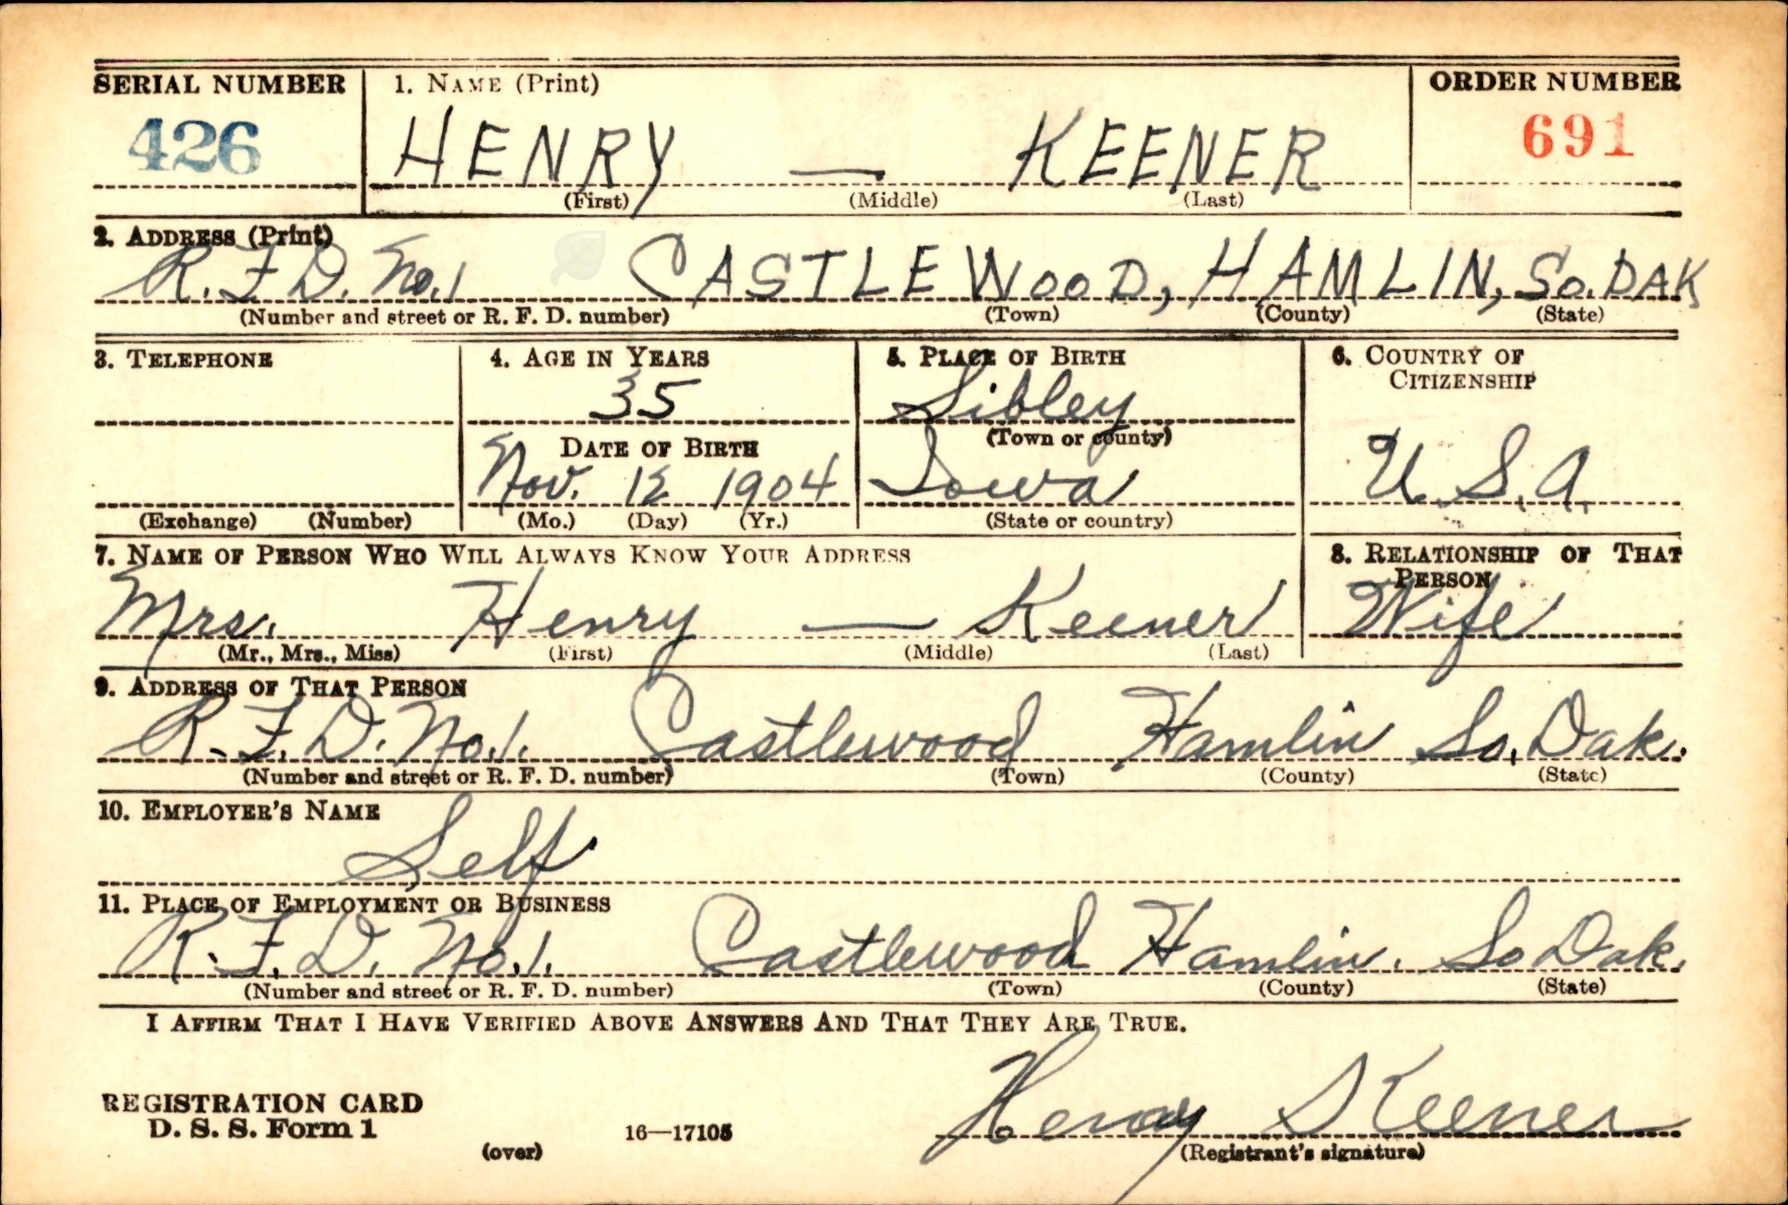 SERIAL NUMBER 1. NAME (Print) ORDER NUMBER
426 HENRY — KEENER 691
(First) (Middle) (Last)
2. ADDRESS (Print)
R.F.D. No.1 CASTLEWOOD, HAMLIN, So.DAK
(Number and street or R. F. D. number) (Town) (County) (State)
3. TELEPHONE 4. AGE IN YEARS 5. PLACE OF BIRTH 6. COUNTRY OF CITIZENSHIP
35 Sibley
DATE OF BIRTH (Town or county)
Nov. 12 1904 Iowa U.S.A.
(Exchange) (Number) (Mo.) (Day) (Yr.) (State or country)
7. NAME OF PERSON WHO WILL ALWAYS KNOW YOUR ADDRESS 8. RELATIONSHIP OF THAT PERSON
Mrs. Henry — Keener Wife
(Mr., Mrs., Miss) (First) (Middle) (Last)
9. ADDRESS OF THAT PERSON
R.F.D. No.1. Castlewood Hamlin So. Dak.
(Number and street or R. F. D. number) (Town) (County) (State)
10. EMPLOYER'S NAME
Self
11. PLACE OF EMPLOYMENT OR BUSINESS
R.F.D. No.1. Castlewood Hamlin. So Dak.
(Number and street or R. F. D. number) (Town) (County) (State)
I AFFIRM THAT I HAVE VERIFIED ABOVE ANSWERS AND THAT THEY ARE TRUE.
Henry Keener
REGISTRATION CARD
D. S. S. Form 1 16—17105
(over) (Registrant's signature)